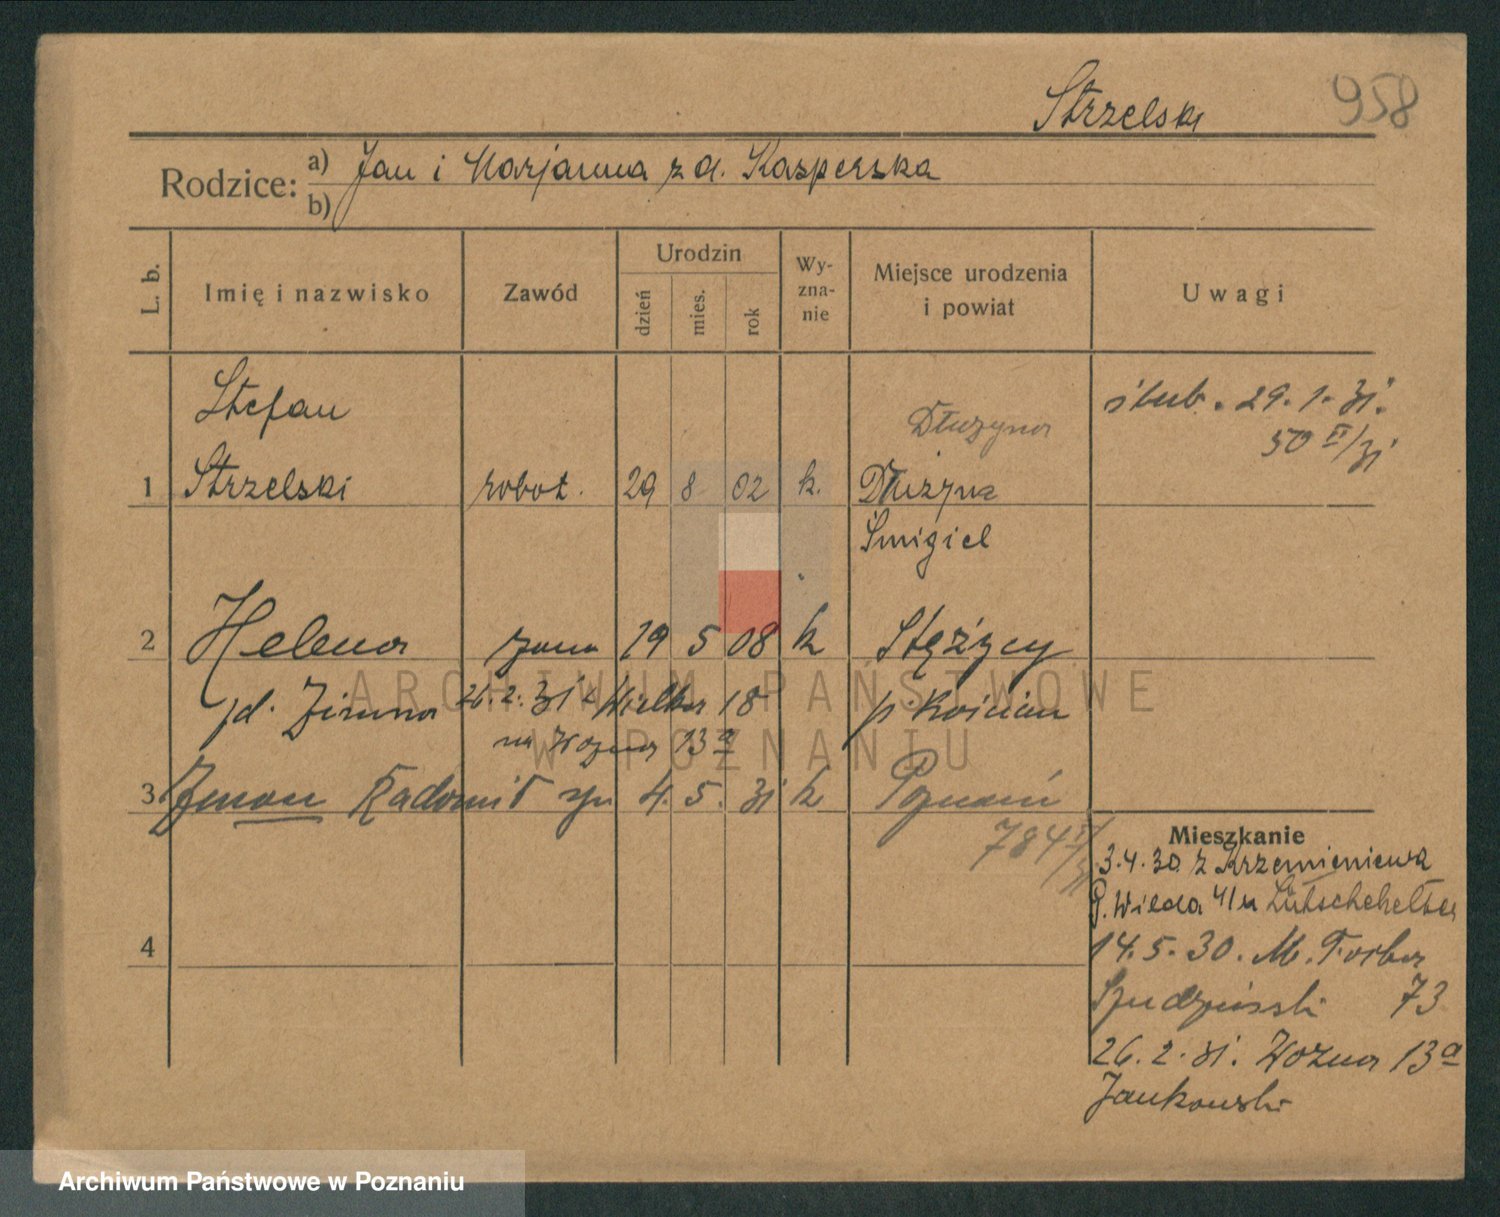 Strzelski
958
Rodzice:
a) Jan i Marjanna z d. Kasperska
b)
L. b.
Imię i nazwisko
Zawód
Urodzin
dzień
mies.
rok
Wy-
zna-
nie
Miejsce urodzenia
i powiat
Uwagi
Stefan
Dłużyna
ślub. 29. 1. 31.
50 II/31
1 Strzelski robot. 29 8 02 k. Dłużyna
Śmigiel
2 Helena żona 19 5 08 k Stężycy
26. 2. 31 z Wielka 18 p Kościan
na Wozna 13a
3 Zenon Radomił syn 4. 5. 31 k Poznań
784
Mieszkanie
3.4.30 z Krzemieniewa
G. Wilda 41
4
14. 5. 30. M. Focha
73
26. 2. 31. Wozna 13a
Jankowski
ARCHIWUM PAŃSTWOWE
W POZNANIU
Archiwum Państwowe w Poznaniu